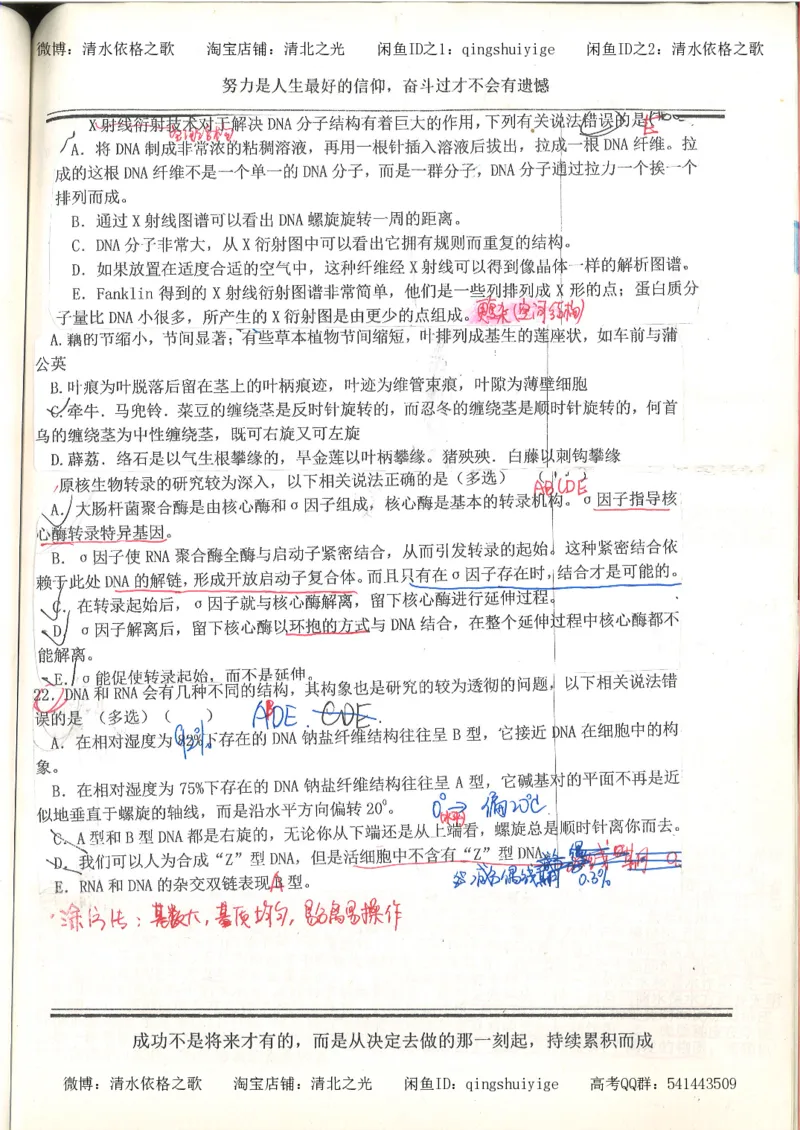 微博：清水依格之歌 淘宝店铺：清北之光 闲鱼ID之1：qingshuiyige 闲鱼ID之2：清水依格之歌
努力是人生最好的信仰，奋斗过才不会有遗憾
X射线衍射技术对于解决 DNA 分子结构有着巨大的作用，下列有关说法错误的是 E
A．将 DNA 制成非常浓的粘稠溶液，再用一根针插入溶液后拔出，拉成一根 DNA 纤维。拉
成的这根 DNA 纤维不是一个单一的 DNA 分子，而是一群分子，DNA 分子通过拉力一个挨一个
排列而成。
B．通过 X 射线图谱可以看出 DNA 螺旋旋转一周的距离。
C．DNA 分子非常大，从 X 衍射图中可以看出它拥有规则而重复的结构。
D．如果放置在适度合适的空气中，这种纤维经 X 射线可以得到像晶体一样的解析图谱。
E．Fanklin 得到的 X 射线衍射图谱非常简单，他们是一些列排列成 X 形的点；蛋白质分
子量比 DNA 小很多，所产生的 X 衍射图是由更少的点组成。 (空间结构)
A.藕的节缩小，节间显著；有些草本植物节间缩短，叶排列成基生的莲座状，如车前与蒲
公英
B.叶痕为叶脱落后留在茎上的叶柄痕迹，叶迹为维管束痕，叶隙为薄壁细胞
C.牵牛．马兜铃．菜豆的缠绕茎是反时针旋转的，而忍冬的缠绕茎是顺时针旋转的，何首
乌的缠绕茎为中性缠绕茎，既可右旋又可左旋
D.薜荔．络石是以气生根攀缘的，旱金莲以叶柄攀缘。猪殃殃．白藤以刺钩攀缘
原核生物转录的研究较为深入，以下相关说法正确的是（多选） （ ） ABCDE
A．大肠杆菌聚合酶是由核心酶和σ因子组成，核心酶是基本的转录机构。σ因子指导核
心酶转录特异基因。
B．σ因子使 RNA 聚合酶全酶与启动子紧密结合，从而引发转录的起始。这种紧密结合依
赖于此处 DNA 的解链，形成开放启动子复合体。而且只有在σ因子存在时，结合才是可能的。
C．在转录起始后，σ因子就与核心酶解离，留下核心酶进行延伸过程。
D．σ因子解离后，留下核心酶以环抱的方式与 DNA 结合，在整个延伸过程中核心酶都不
能解离。
E．σ能促使转录起始，而不是延伸。
22．DNA 和 RNA 会有几种不同的结构，其构象也是研究的较为透彻的问题，以下相关说法错
误的是 （多选）（ ） ADE CDE
A．在相对湿度为 92%下存在的 DNA 钠盐纤维结构往往呈 B 型，它接近 DNA 在细胞中的构
象。
B．在相对湿度为 75%下存在的 DNA 钠盐纤维结构往往呈 A 型，它碱基对的平面不再是近
似地垂直于螺旋的轴线，而是沿水平方向偏转 20⁰。 偏20℃
C．A 型和 B 型 DNA 都是右旋的，无论你从下端还是从上端看，螺旋总是顺时针离你而去。
D．我们可以人为合成“Z”型 DNA，但是活细胞中不含有“Z”型 DNA。
E．RNA 和 DNA 的杂交双链表现 型。 0.3%
成功不是将来才有的，而是从决定去做的那一刻起，持续累积而成
微博：清水依格之歌 淘宝店铺：清北之光 闲鱼ID：qingshuiyige 高考QQ群：541443509